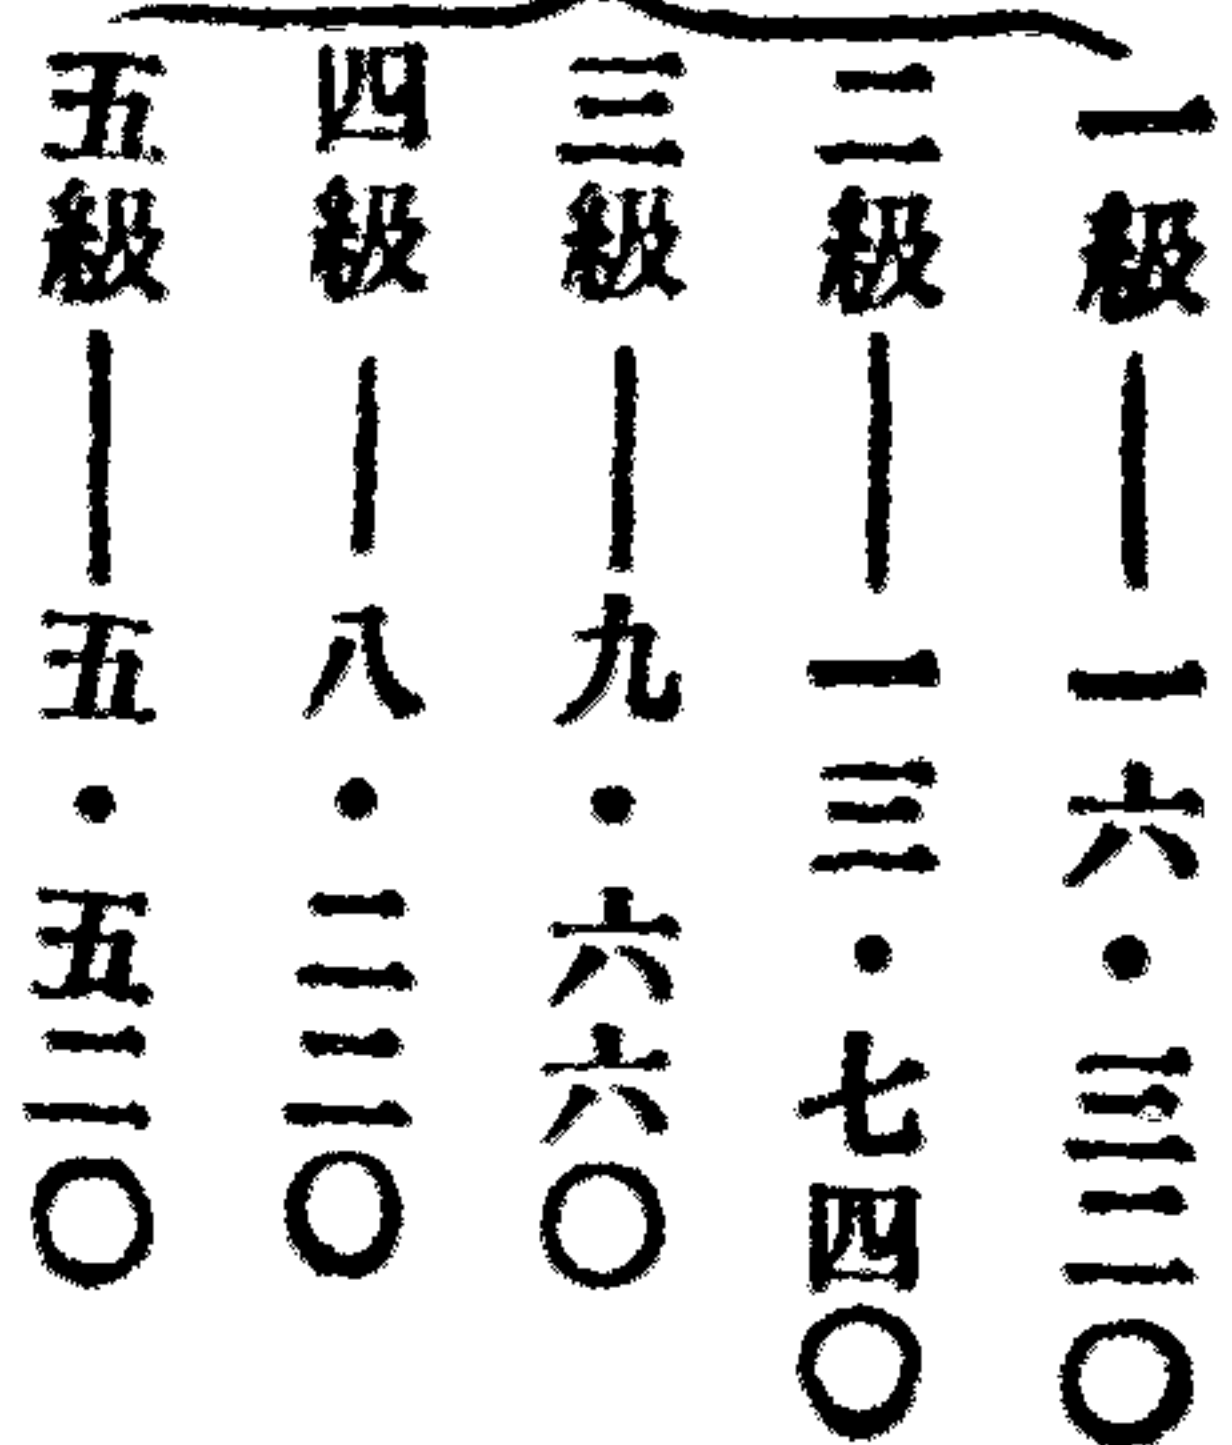 一級——一六・三二〇
二級——一三・七四〇
三級——九・六六〇
四級——八・二二〇
五級——五・五二〇